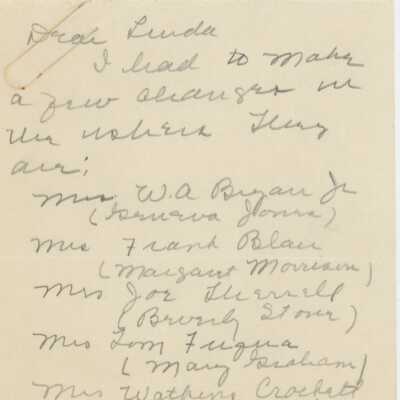 Dear Linda
I had to make
a few changes in
the ushers They
are:
Mrs W.A Bryan Jr
(Geneva Jones)
Mrs Frank Blair
(Margaret Morrison)
Mrs Joe Therrell
(Beverly Stone)
Mrs Tom Fuqua
(Mary Graham)
Mrs Watkins Crockett